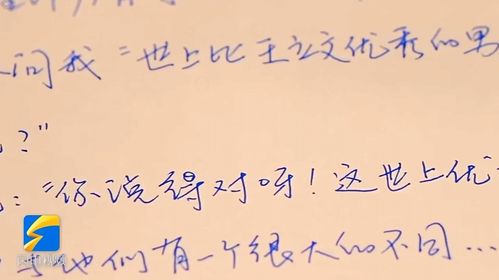 人问我“世上比王立文优秀的男
?”
:“你说得对呀!这世上优
与他们有一个很大的不同...
闪电视频